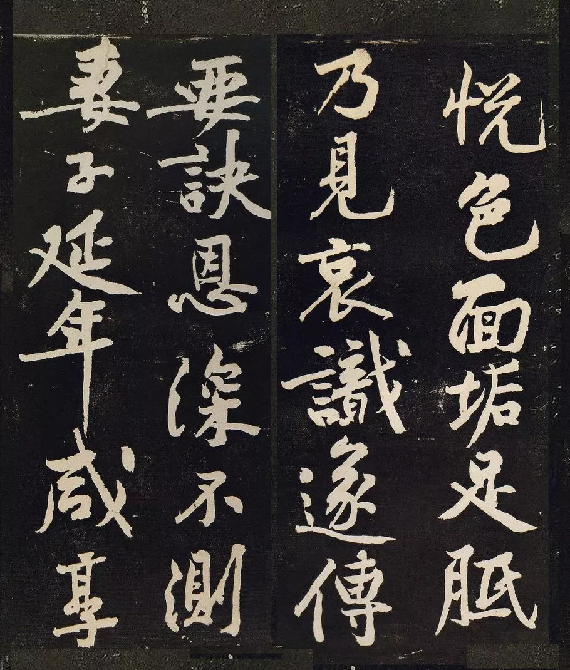 悅色面垢足胝
乃見哀識遂傳
要訣恩深不測
妻子延年咸享